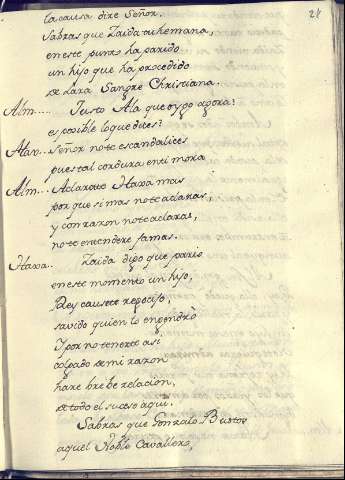 la causa dire Señor.
28
Sabras que Zaida tu hemana,
en este punto ha parido
un hijo que ha procedido
de Lara Sangre Christiana.
Alm..... Justo Alà que oygo agora?
es posible loque dites?
Señor note escandalices
pues tal cordura en ti mora
Alm... Aclarate Haxa mas
por que si mas note aclaras,
y con razon note aclaras,
no te entendere jamas.
Haxa.. Zaida digo que pario
en este momento un hijo,
Rey causete regocijo,
savido quien lo engendrò
Y por no tenerte asi
colgado de mi razon
hare bre be relacion,
de todo el suceso aqui.
Sabras que Gonzalo Bustos
aquel Noble Cavallero,